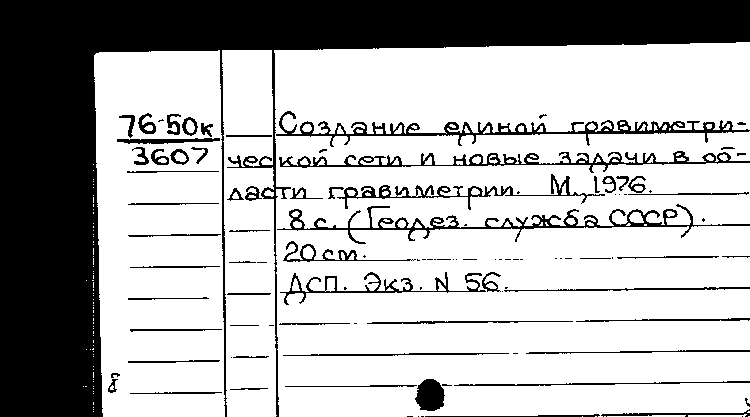 76-50к
3607
Создание единой гравиметри-
ческой сети и новые задачи в об-
ласти гравиметрии. М., 1976.
8 с. (Геодез. служба СССР).
20 см.
ДСП. Экз. N 56.